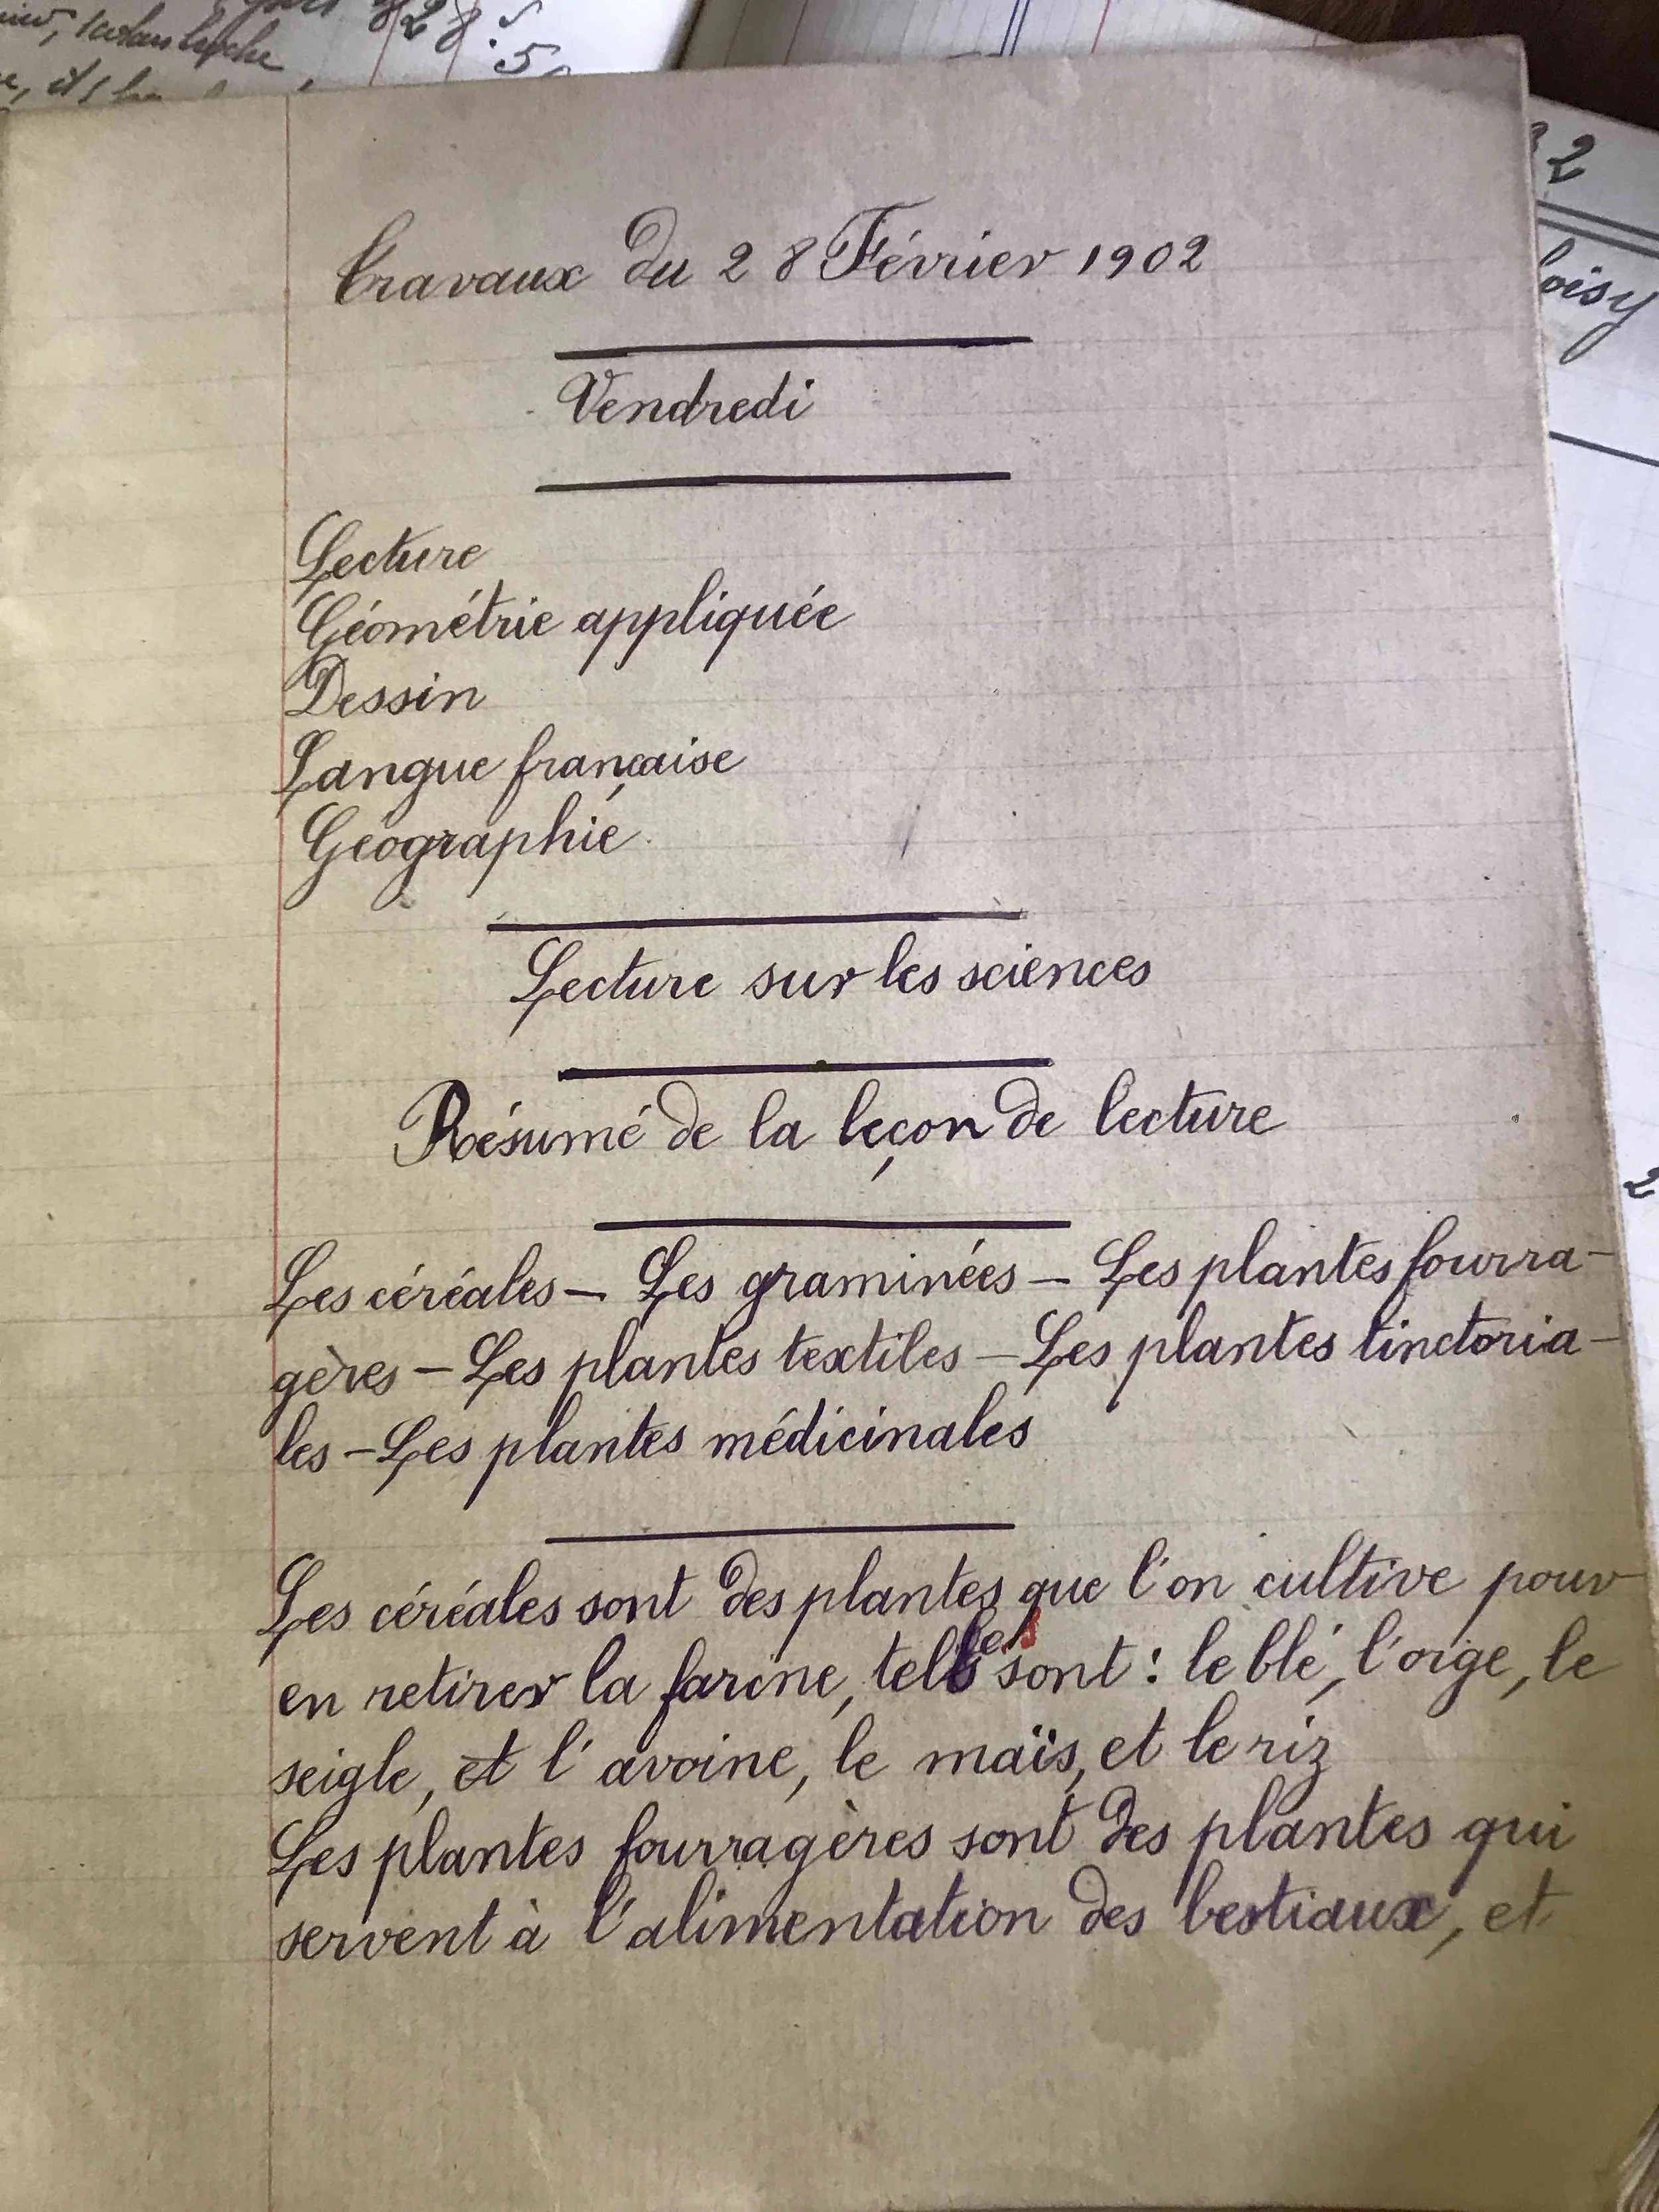 828.
5
2
oisy
Travaux du 28 Février 1902
Vendredi
Lecture
Géométrie appliquée
Dessin
Langue française
Géographie
Lecture sur les sciences
Résumé de la leçon de lecture
2
Les céréales – Les graminées – Les plantes fourra-
gères – Les plantes textiles – Les plantes tinctoria-
les – Les plantes médicinales
Les céréales sont des plantes que l'on cultive pour
en retirer la farine, telles sont : le blé, l'orge, le
seigle, et l'avoine, le maïs, et le riz
Les plantes fourragères sont des plantes qui
servent à l'alimentation des bestiaux, et